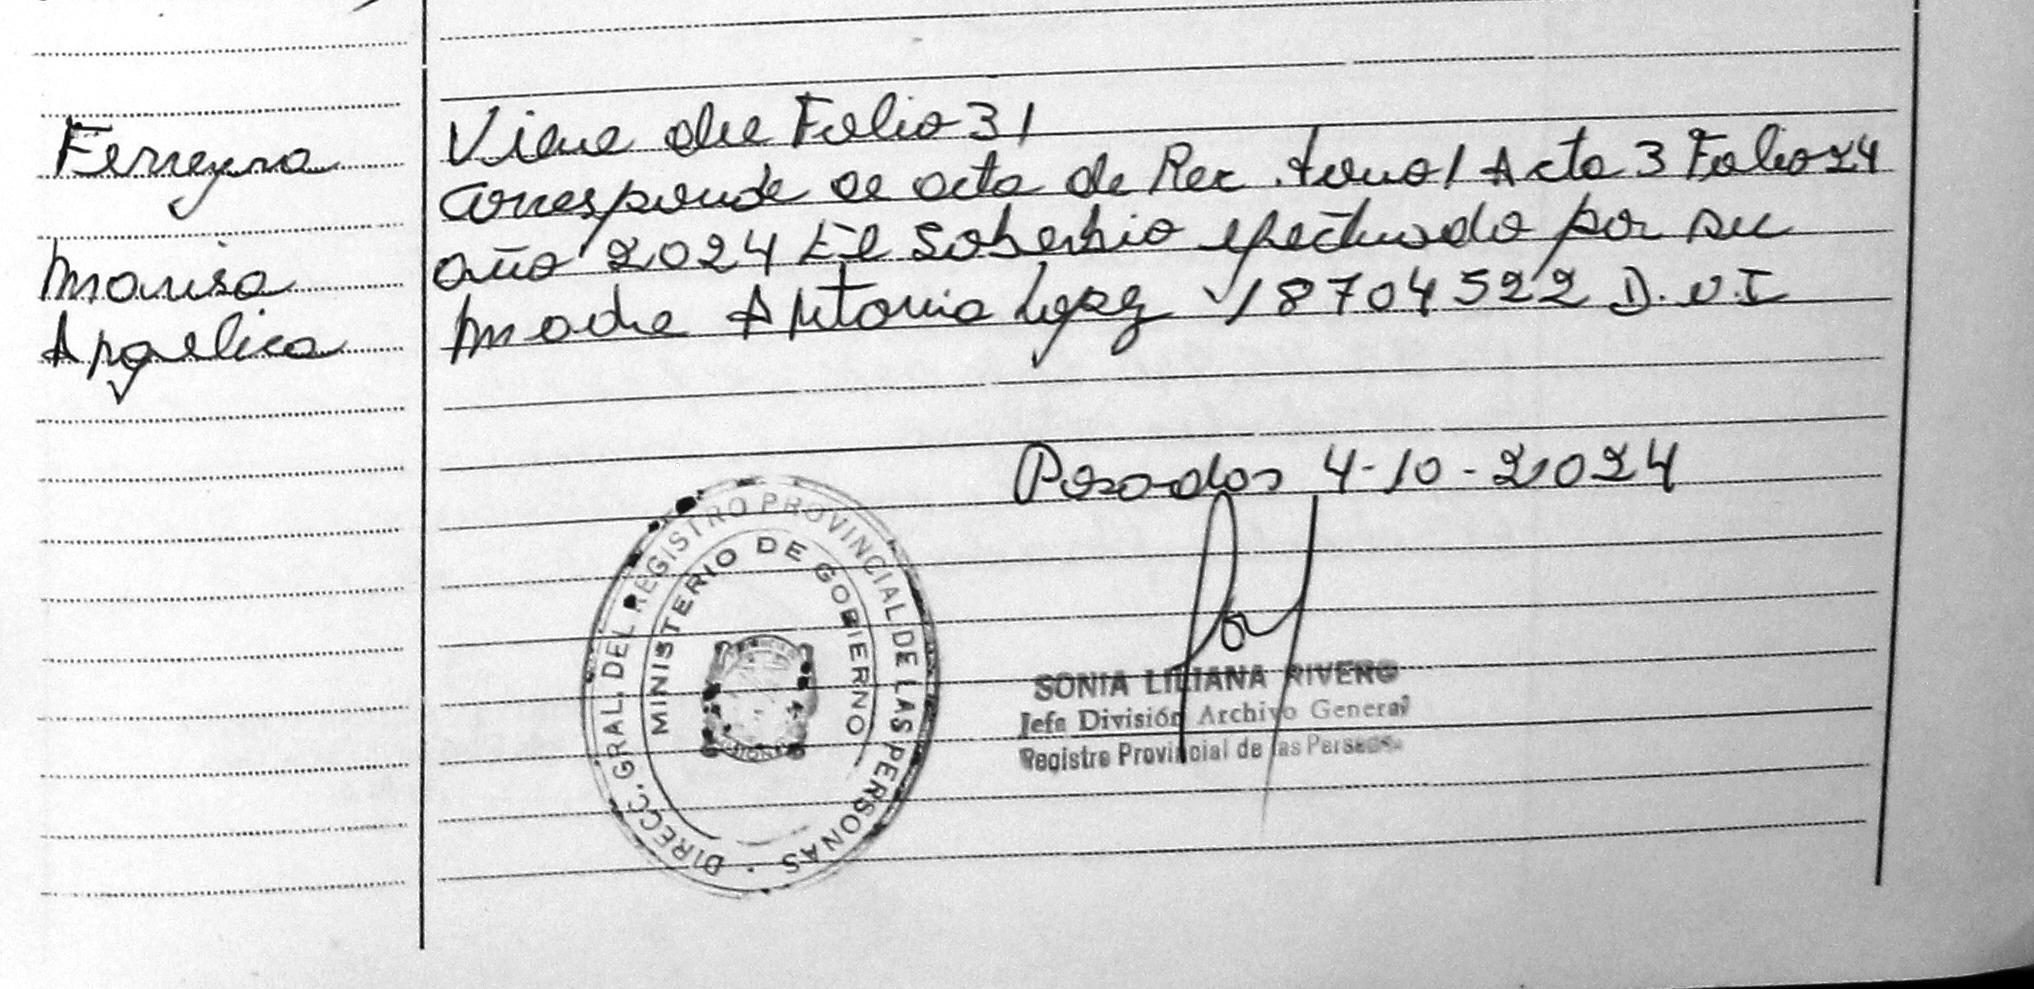 Ferreyra
Marisa
Angelica
Viene del Folio 31
corresponde al acta de Rec. tomo 1 Acta 3 Folio 24
año 2024 El Soberbio efectuado por su
madre Antonia Lopez 18704522 D.N.I
Posadas 4-10-2024
DIRECC. GRAL. DEL REGISTRO PROVINCIAL DE LAS PERSONAS
MINISTERIO DE GOBIERNO
SONIA LILIANA RIVERO
Jefa División Archivo General
Registro Provincial de las Personas